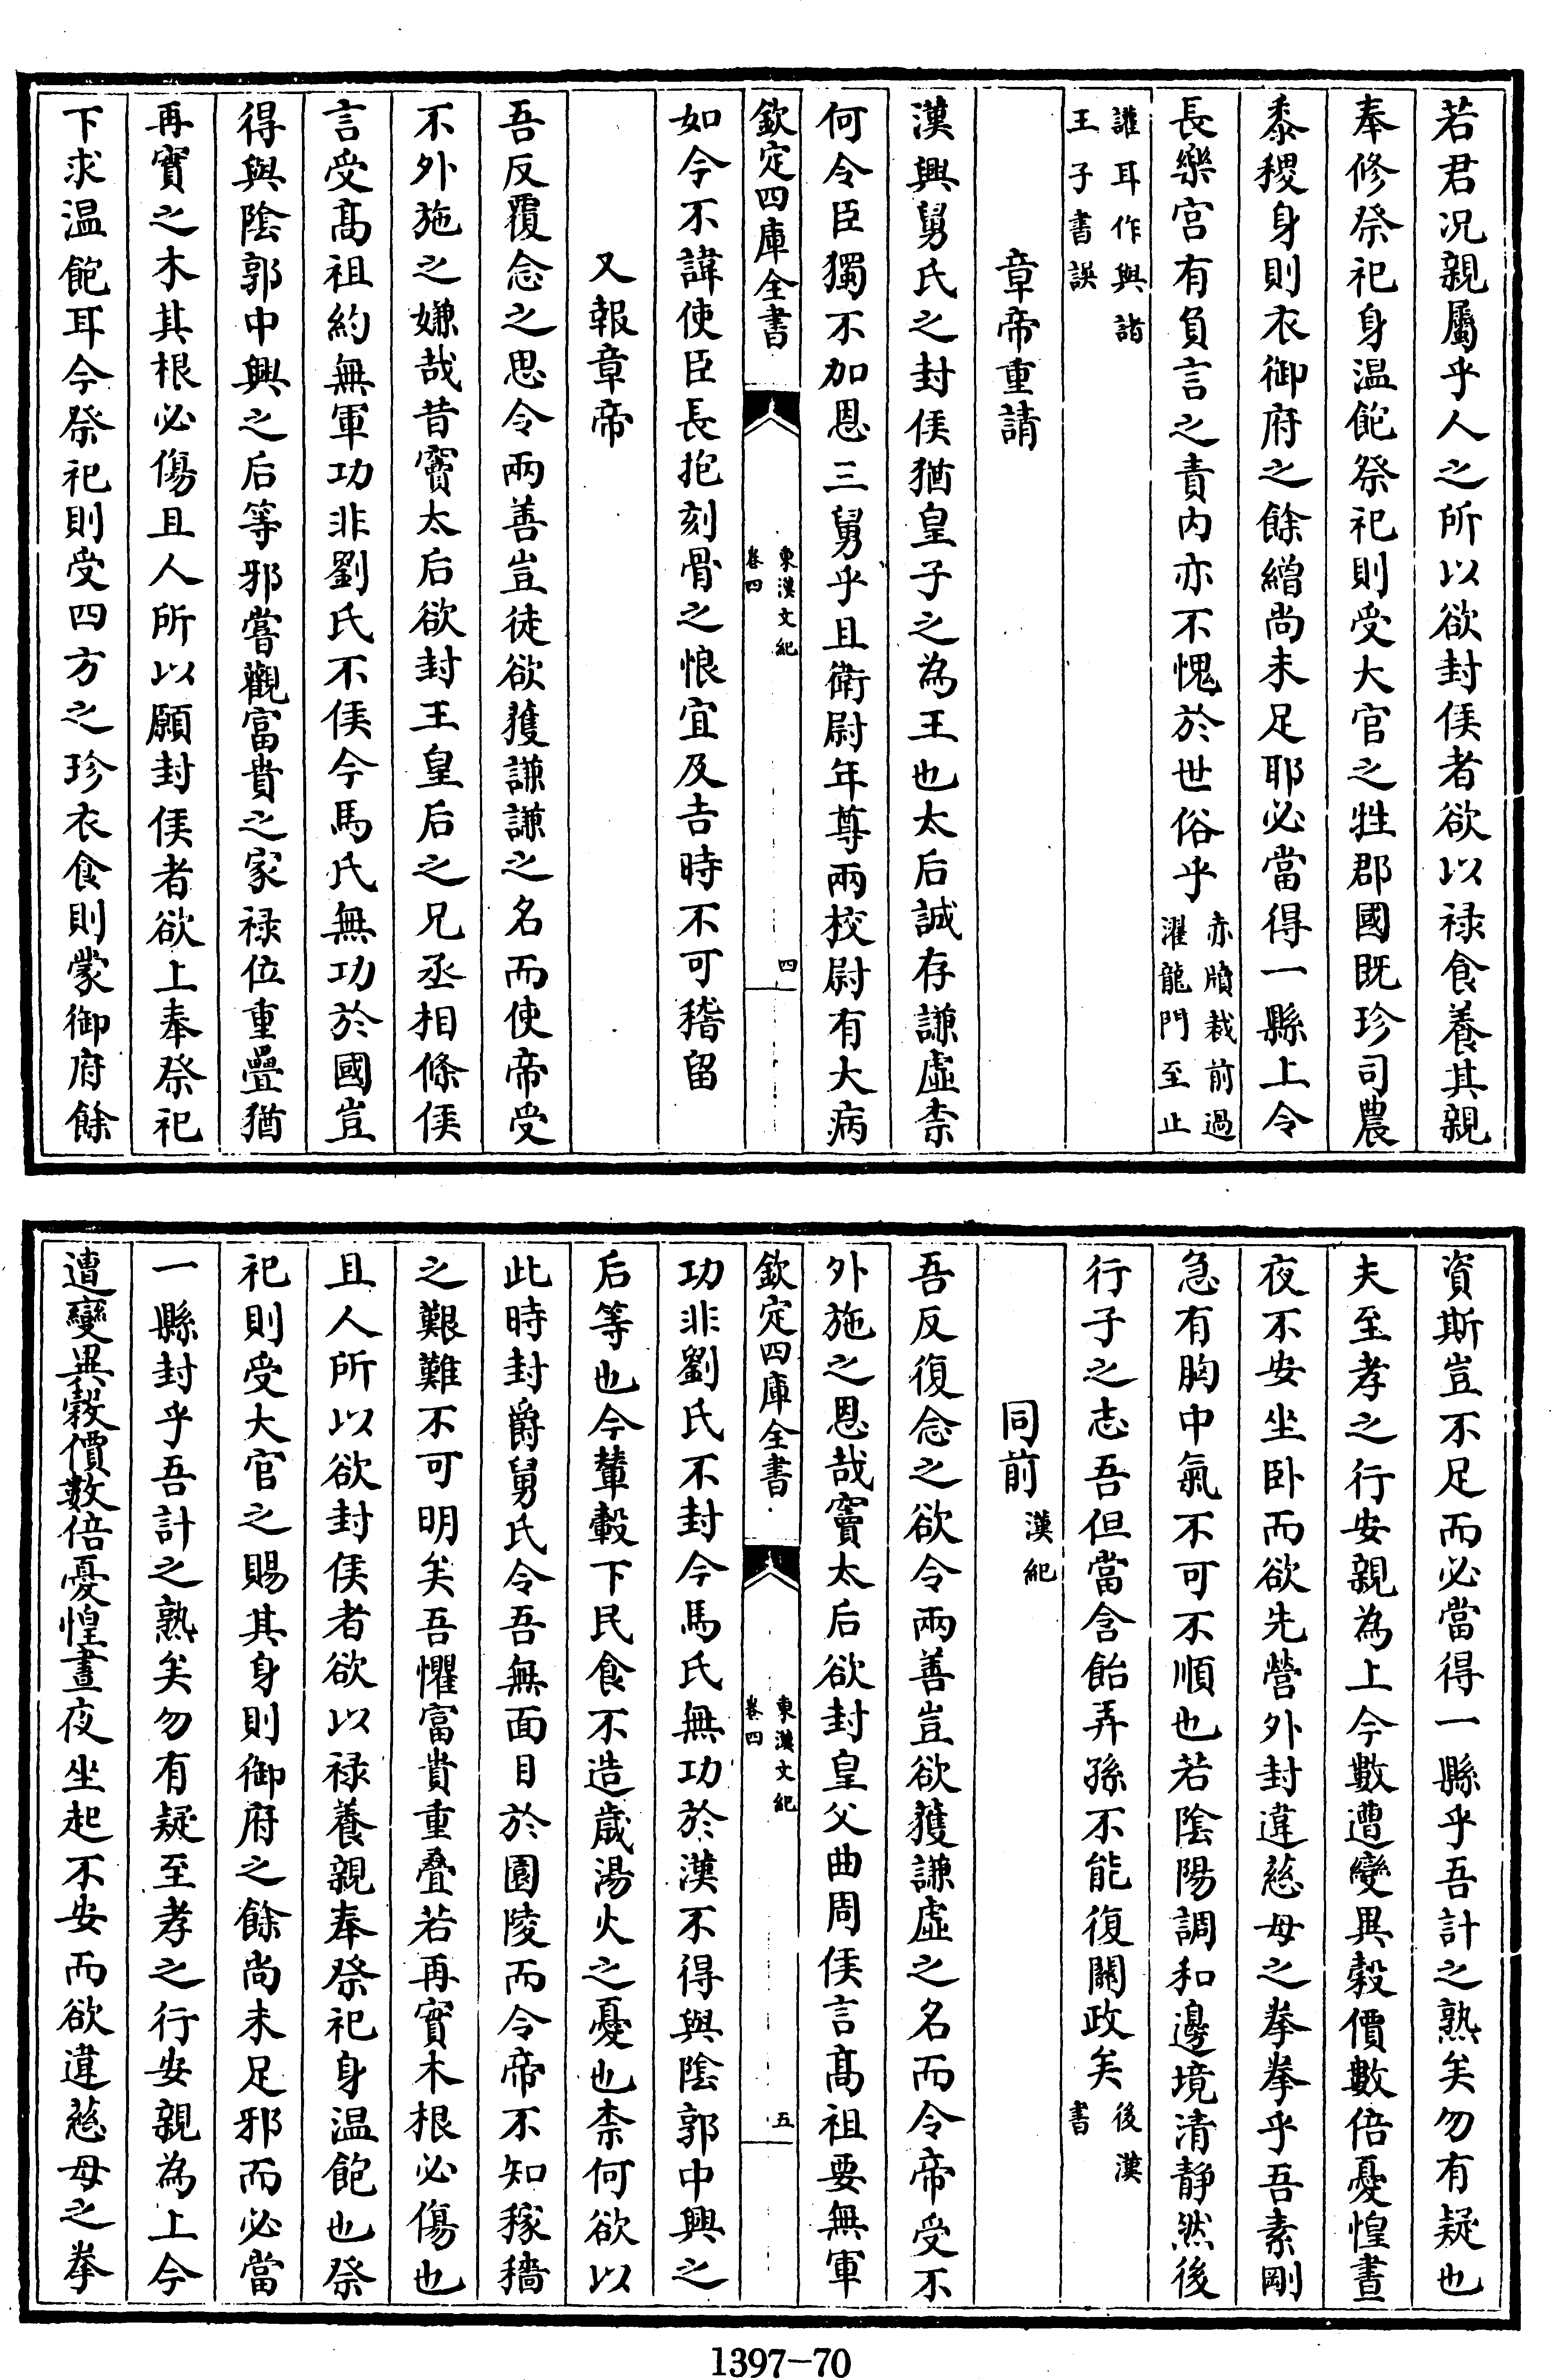 若君况親屬乎人之所以欲封侯者欲以禄食養其親
奉修祭祀身温飽祭祀則受大官之牲郡國既珍司農
黍稷身則衣御府之餘繒尚未足耶必當得一縣上令
長樂宫有負言之責内亦不愧於世俗乎赤牘裁前過
濯龍門至止
讙耳作與諸
王子書誤
章帝重請
漢興舅氏之封侯猶皇子之為王也太后誠存謙虚柰
何令臣獨不加恩三舅乎且衛尉年尊兩校尉有大病
欽定四庫全書
東漢文紀
卷四
四
如今不諱使臣長抱刻骨之恨宜及吉時不可稽留
又報章帝
吾反覆念之思令兩善豈徒欲獲謙謙之名而使帝受
不外施之嫌哉昔竇太后欲封王皇后之兄丞相條侯
言受髙祖約無軍功非劉氏不侯今馬氏無功於國豈
得與陰郭中興之后等邪嘗觀富貴之家禄位重疊猶
再實之木其根必傷且人所以願封侯者欲上奉祭祀
下求温飽耳今祭祀則受四方之珍衣食則蒙御府餘
資斯豈不足而必當得一縣乎吾計之熟矣勿有疑也
夫至孝之行安親為上今數遭變異穀價數倍憂惶晝
夜不安坐卧而欲先營外封違慈母之拳拳乎吾素剛
急有胸中氣不可不順也若陰陽調和邊境清静然後
行子之志吾但當含飴弄孫不能復闗政矣後漢
書
同前漢紀
吾反復念之欲令兩善豈欲獲謙虚之名而令帝受不
外施之恩哉竇太后欲封皇父曲周侯言髙祖要無軍
欽定四庫全書
東漢文紀
卷四
五
功非劉氏不封今馬氏無功於漢不得與陰郭中興之
后等也今輦轂下民食不造歳湯火之憂也柰何欲以
此時封爵舅氏令吾無面目於園陵而令帝不知稼穡
之艱難不可明矣吾懼富貴重疊若再實木根必傷也
且人所以欲封侯者欲以禄養親奉祭祀身温飽也祭
祀則受大官之賜其身則御府之餘尚未足邪而必當
一縣封乎吾計之熟矣勿有疑至孝之行安親為上今
遭變異穀價數倍憂惶晝夜坐起不安而欲違慈母之拳
1397-70